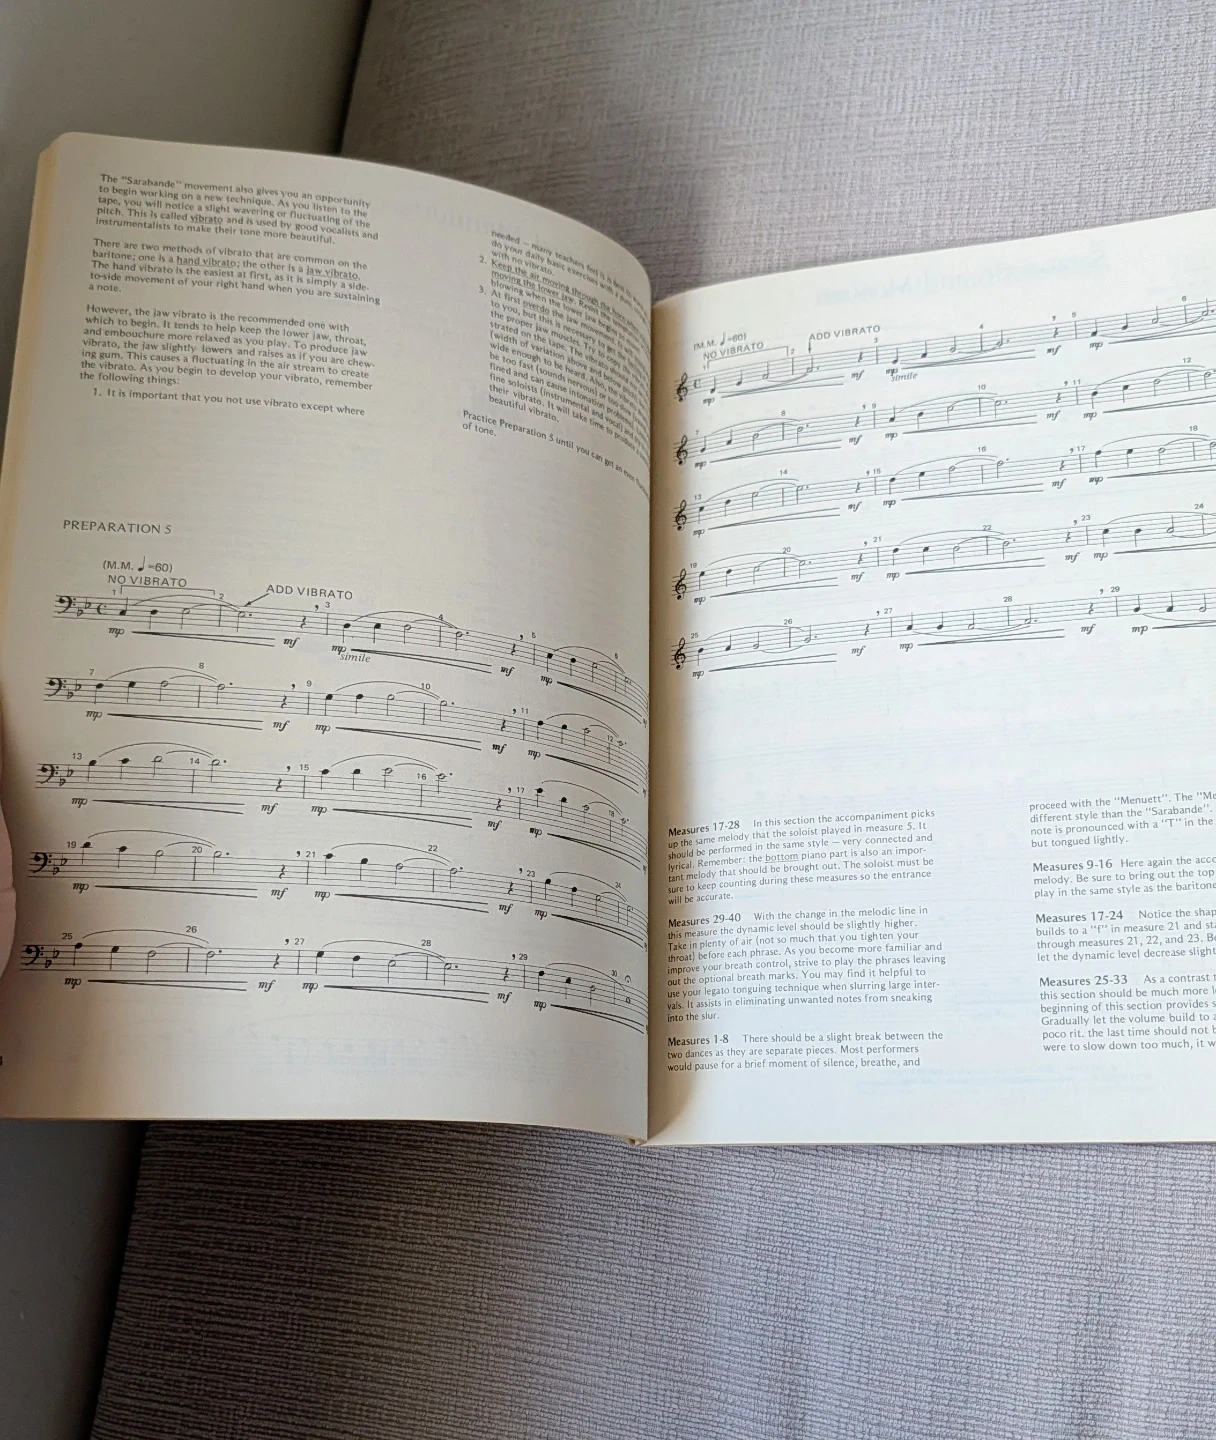 The "Sarabande" movement also gives you an opportunity
to begin working on a new technique. As you listen to the
tape, you will notice a slight wavering or fluctuating of the
pitch. This is called vibrato and is used by good vocalists and
instrumentalists to make their tone more beautiful.
There are two methods of vibrato that are common on the
baritone; one is a hand vibrato; the other is a jaw vibrato.
The hand vibrato is the easiest at first, as it is simply a side-
to-side movement of your right hand when you are sustaining
a note.
However, the jaw vibrato is the recommended one with
which to begin. It tends to help keep the lower jaw, throat,
and embouchure more relaxed as you play. To produce jaw
vibrato, the jaw slightly lowers and raises as if you are chew-
ing gum. This causes a fluctuating in the air stream to create
the vibrato. As you begin to develop your vibrato, remember
the following things:
1. It is important that you not use vibrato except where
needed — many teachers feel it is
do your daily basic exercises with a
with no vibrato.
2. Keep the air moving through the horn
moving the lower jaw. Resist the
blowing when the lower jaw begins
3. At first overdo the jaw movement.
to you, but this is necessary to get the
the proper jaw muscles. Try to copy the
strated on the tape. The vibrato should
(width of variation above and below
wide enough to be heard. Also, the vibrato
be too fast (sounds nervous) or too slow
fined and can cause intonation problems
fine soloists (instrumental and vocal) and
their vibrato. It will take time to produce
beautiful vibrato.
Practice Preparation 5 until you can get an even
of tone.
PREPARATION 5
(M.M. ♩=60)
NO VIBRATO
ADD VIBRATO
1 2 3 4 5 6
mp mf mp simile mf mp
7 8 9 10 11 12
mp mf mp mf mp
13 14 15 16 17 18
mp mf mp mf mp
19 20 21 22 23 24
mp mf mp mf mp
25 26 27 28 29 30
mp mf mp mf mp
(M.M. ♩=60)
NO VIBRATO
ADD VIBRATO
2 3 4 5 6
mp mf mp simile mf mp
7 8 9 10 11 12
mp mf mp mf mp
13 14 15 16 17 18
mp mf mp mf mp
19 20 21 22 23 24
mp mf mp mf mp
25 26 27 28 29
mp mf mp mf mp
Measures 17-28 In this section the accompaniment picks
up the same melody that the soloist played in measure 5. It
should be performed in the same style — very connected and
lyrical. Remember: the bottom piano part is also an impor-
tant melody that should be brought out. The soloist must be
sure to keep counting during these measures so the entrance
will be accurate.
Measures 29-40 With the change in the melodic line in
this measure the dynamic level should be slightly higher.
Take in plenty of air (not so much that you tighten your
throat) before each phrase. As you become more familiar and
improve your breath control, strive to play the phrases leaving
out the optional breath marks. You may find it helpful to
use your legato tonguing technique when slurring large inter-
vals. It assists in eliminating unwanted notes from sneaking
into the slur.
Measures 1-8 There should be a slight break between the
two dances as they are separate pieces. Most performers
would pause for a brief moment of silence, breathe, and
proceed with the "Menuett". The "Me
different style than the "Sarabande".
note is pronounced with a "T" in the
but tongued lightly.
Measures 9-16 Here again the acco
melody. Be sure to bring out the top
play in the same style as the baritone
Measures 17-24 Notice the shap
builds to a "f" in measure 21 and sta
through measures 21, 22, and 23. Be
let the dynamic level decrease slight
Measures 25-33 As a contrast t
this section should be much more l
beginning of this section provides s
Gradually let the volume build to a
poco rit. the last time should not b
were to slow down too much, it w